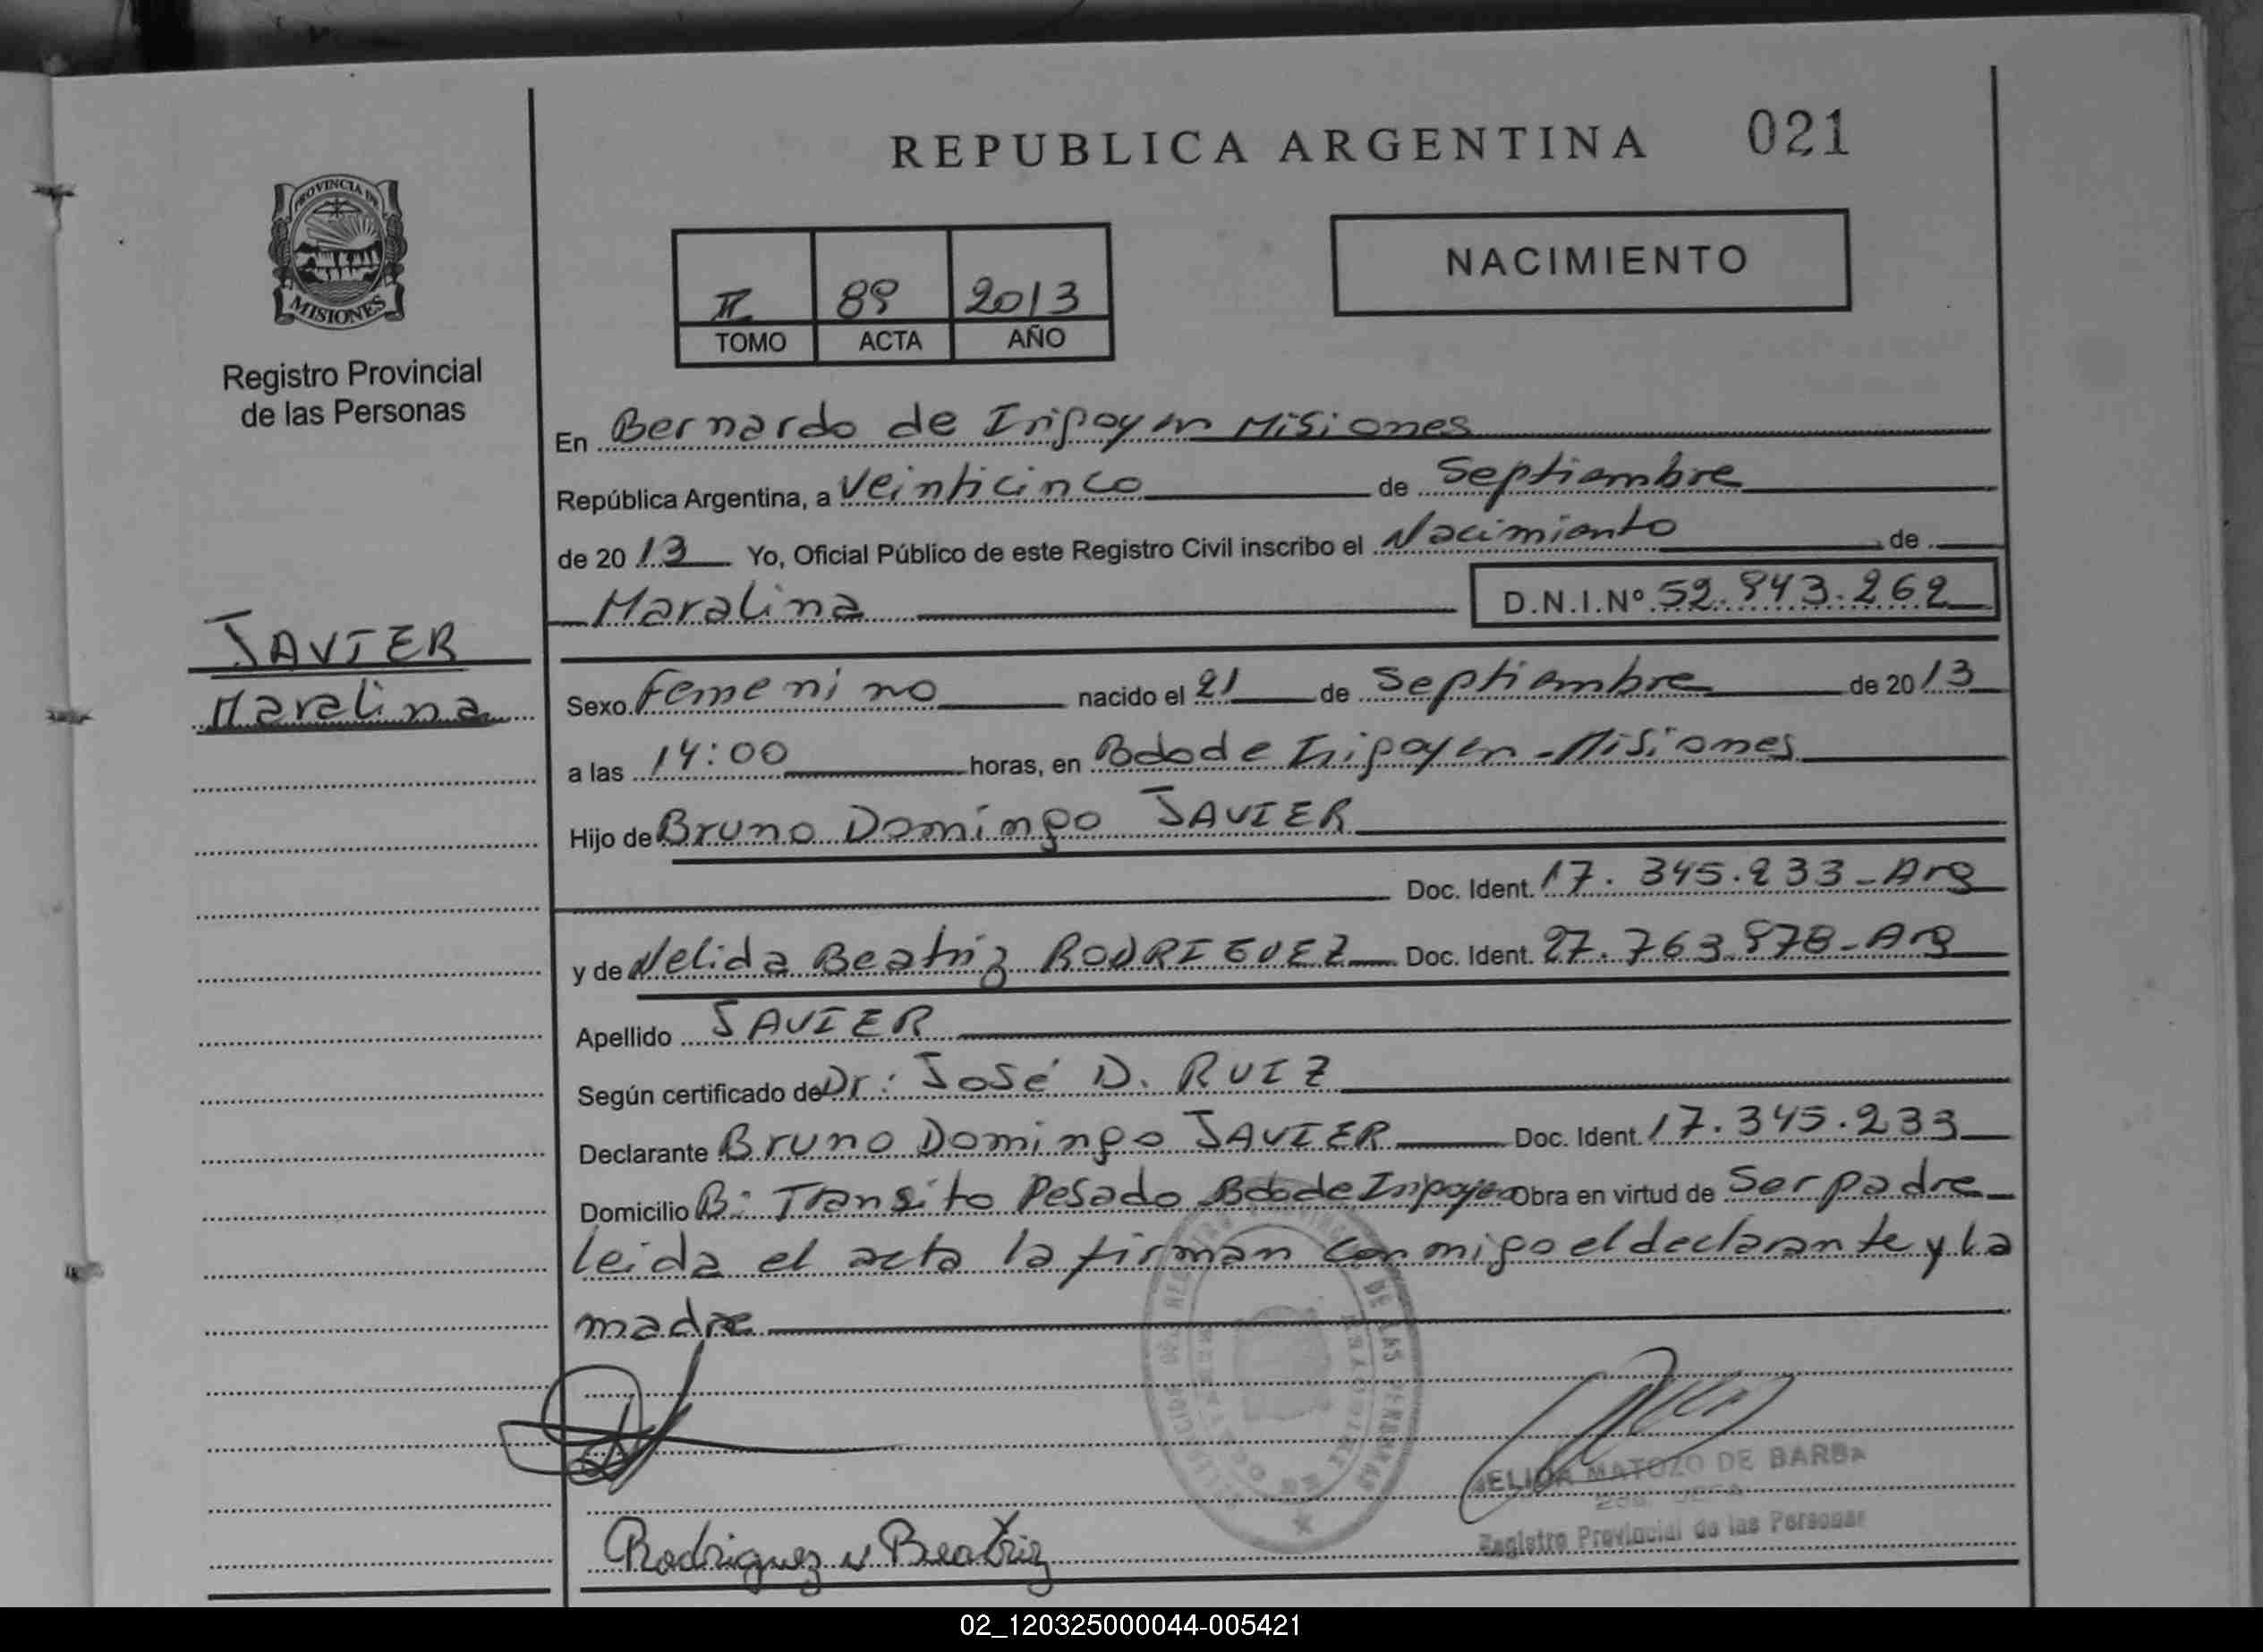 REPUBLICA ARGENTINA 021
PROVINCIA DE
MISIONES
Registro Provincial
de las Personas
NACIMIENTO
II 89 2013
TOMO ACTA AÑO
En Bernardo de Irigoyen Misiones
República Argentina, a Veinticinco de Septiembre
de 2013 Yo, Oficial Público de este Registro Civil inscribo el Nacimiento de
Maralina D.N.I.Nº 52.943.262
JAVIER
Maralina
Sexo Femenino nacido el 21 de Septiembre de 2013
a las 14:00 horas, en Bdo de Irigoyen - Misiones
Hijo de Bruno Domingo JAVIER
Doc. Ident. 17.345.233 - Arg
y de Nelida Beatriz RODRIGUEZ Doc. Ident. 27.763.978 - Arg
Apellido JAVIER
Según certificado de Dr: José D. RUIZ
Declarante Bruno Domingo JAVIER Doc. Ident. 17.345.233
Domicilio B: Transito Pesado Bdo de Irigoyen Obra en virtud de Ser padre
leida el acta la firman conmigo el declarante y la
madre
MATOZO DE BARBA
Registro Provincial de las Personas
Rodriguez N Beatriz
02_120325000044-005421